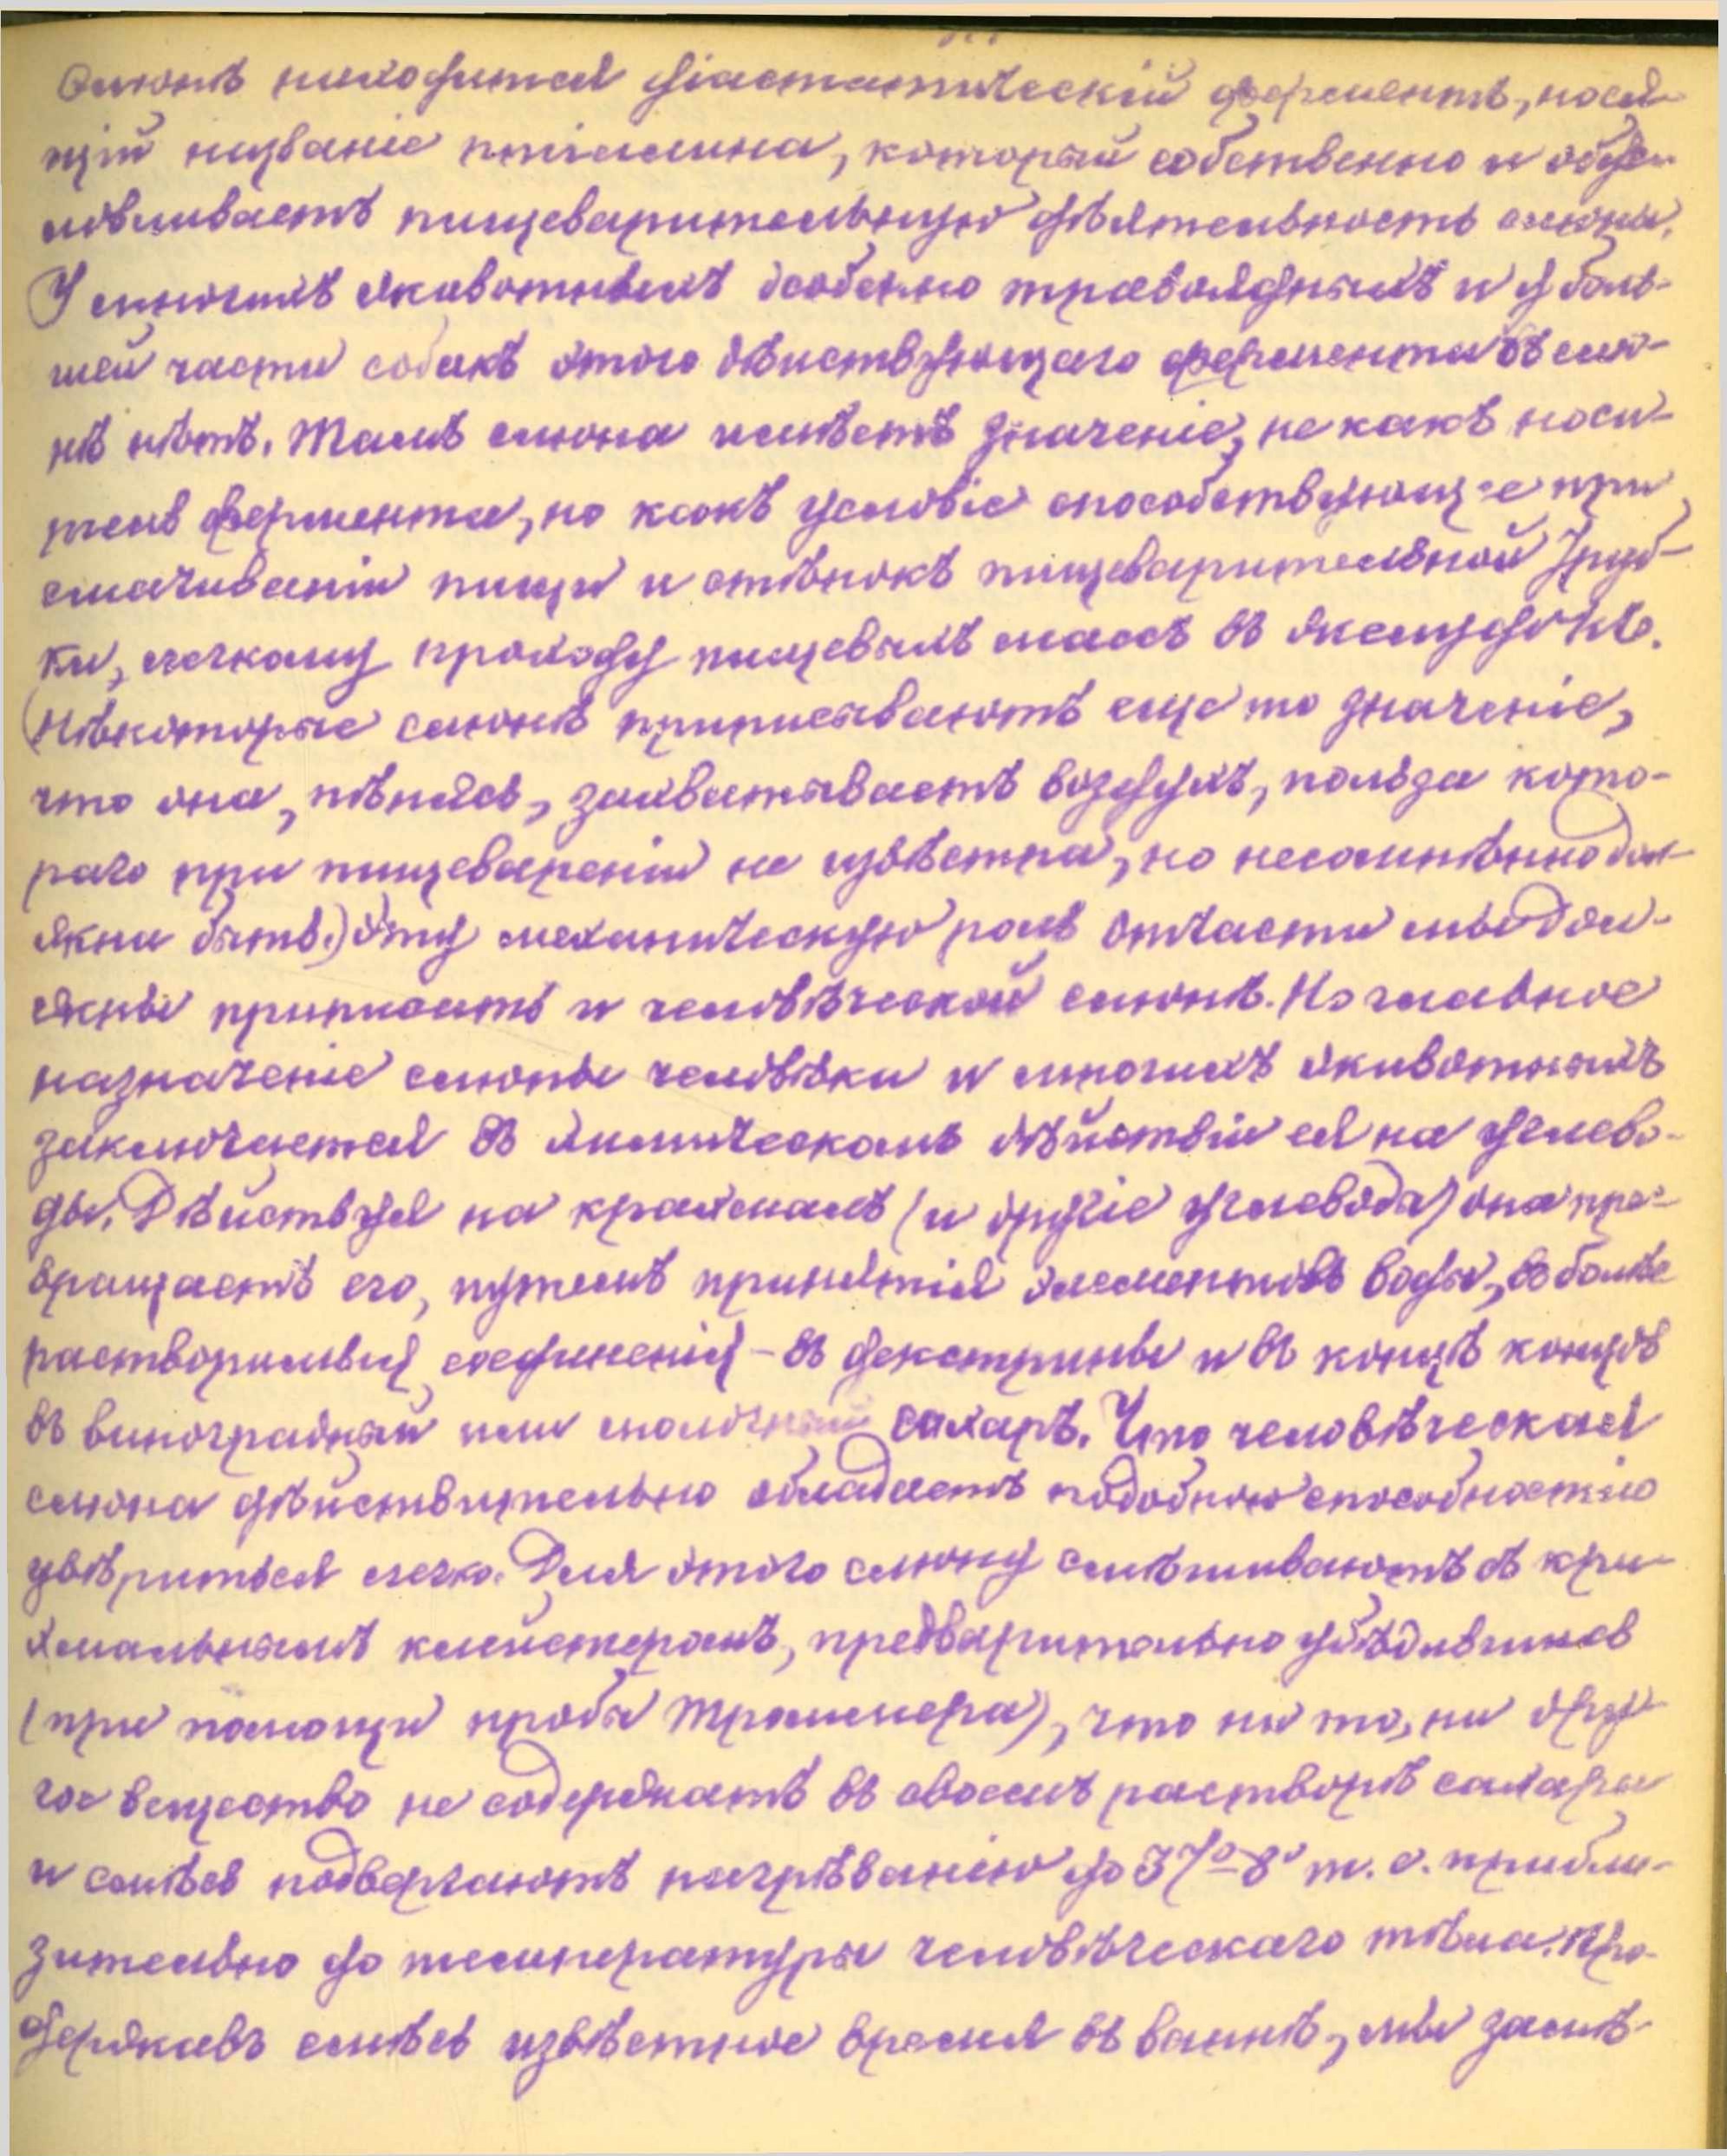 слюнѣ находится діастатическій ферментъ, нося-
щій названіе птіалина, который собственно и обус-
ловливаетъ пищеварительную дѣятельность слюны.
У многихъ животныхъ особенно травоядныхъ и у боль-
шей части собакъ этого дѣйствующаго фермента въ слю-
нѣ нѣтъ. Тамъ слюна имѣетъ значеніе, не какъ носи-
тель фермента, но какъ условіе способствующее при
смачиваніи пищи и стѣнокъ пищеварительной труб-
ки, легкому проходу пищевыхъ массъ въ желудокъ.
(Нѣкоторые слюнѣ приписываютъ еще то значеніе,
что она, пѣнясь, захватываетъ воздухъ, польза кото-
раго при пищевареніи не извѣстна, но несомнѣнно дол-
жна быть.) Эту механическую роль отчасти мы дол-
жны приписать и человѣческой слюнѣ. Но главное
назначеніе слюны человѣка и многихъ животныхъ
заключается въ химическомъ дѣйствіи ея на углево-
ды. Дѣйствуя на крахмалъ (и другіе углеводы) она пре-
вращаетъ его, путемъ принятія элементовъ воды, въ болѣе
растворимыя соединенія – въ декстрины и въ концѣ концовъ
въ виноградный или молочный сахаръ. Что человѣческая
слюна дѣйствительно обладаетъ подобною способностію
увѣриться легко. Для этого слюну смѣшиваютъ съ кра-
хмальнымъ клейстеромъ, предварительно убѣдившись
(при помощи пробы Троммера), что ни то, ни дру-
гое вещество не содержатъ въ своемъ растворѣ сахара
и смѣсь подвергаютъ нагрѣванію до 37°–8° т. е. прибли-
зительно до температуры человѣческаго тѣла. Про-
державъ смѣсь извѣстное время въ ваннѣ, мы замѣ-